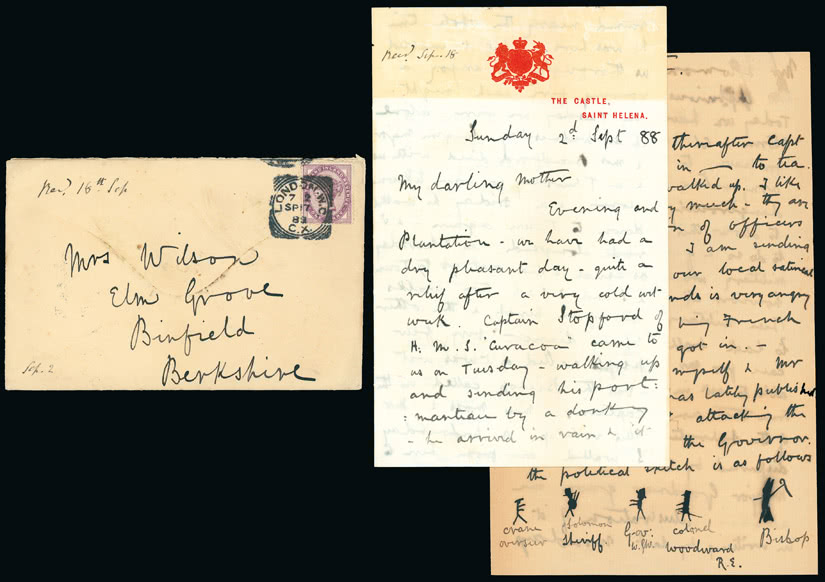 Recd 18th Sep
LONDON.W.C
7
SP17
88
C.X.
Mrs Wilson
Elm Grove
Binfield
Berkshire
Sep. 2
Recd Sep. 18
THE CASTLE,
SAINT HELENA.
Sunday 2d. Sept 88
My darling Mother
Evening and
Plantation - we have had a
dry pleasant day - quite a
relief after a very cold wet
week. Captain Stopford of
H. M. S. "Curacoa" came to
us on Tuesday - walking up
and sending his port:
:manteau by a donkey
- he arrived in rain &
thereafter Capt
in — to tea.
walked up. I like
much - they are
of officers
I am sending
our local satirical
is very angry
French
got in. -
myself & Mr
has lately published
attacking the
the Governor.
the political sketch is as follows
Crane
overseer
Solomon
Sheriff.
Gov:
W.G.W.
Colonel
Woodward
R.E.
Bishop